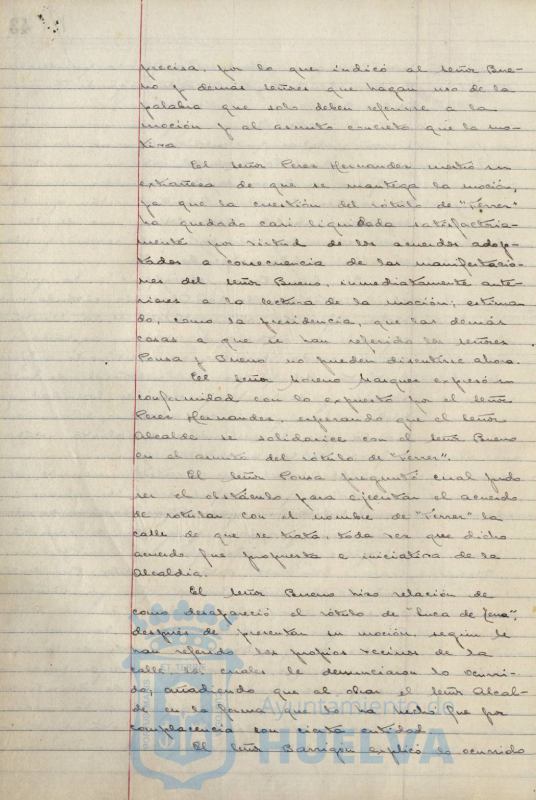 precisa, por lo que indicó al señor Bue-
no y demás señores que hagan uso de la
palabra que solo deben referirse a la
moción y al asunto concreto que la mo-
tiva
El señor Perez Hernandez mostró su
extrañesa de que se mantega la moción,
ya que la cuestión del rótulo de "Ferrer"
ha quedado casi liquidada satisfactoria-
mente por virtud de los acuerdos adop-
tados a consecuencia de las manifestacio-
nes del señor Bueno, inmediatamente ante-
riores a la lectura de la moción; estiman-
do, como la presidencia, que las demás
cosas a que se han referido los señores
Ponsa y Bueno no pueden discutirse ahora.
El señor Moreno Marquez expresó su
conformidad con lo expuesto por el señor
Perez Hernandez, esperando que el señor
Alcalde se solidarice con el señor Bueno
en el asunto del rótulo de "Ferrer".
El señor Ponsa preguntó cual pudo
ser el obstáculo para ejecutar el acuerdo
de rotular con el nombre de "Ferrer" la
calle de que se trata, toda vez que dicho
acuerdo fue propuesta e iniciativa de la
Alcaldia.
El señor Bueno hizo relación de
como desapareció el rótulo de "Luca de Tena",
después de presentar su moción, según le
han referido los propios vecinos de la
calle los cuales le denunciaron lo ocurri-
do; añadiendo que al obrar el señor Alcal-
de en la forma que lo ha hecho fue por
complacencia con cierta entidad
El señor Barrigón explicó lo ocurrido
Ayuntamiento de
HUELVA